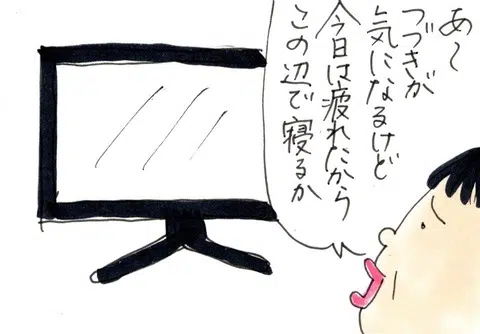 あ〜
つづきが
気になるけど
今日は疲れたから
この辺で寝るか